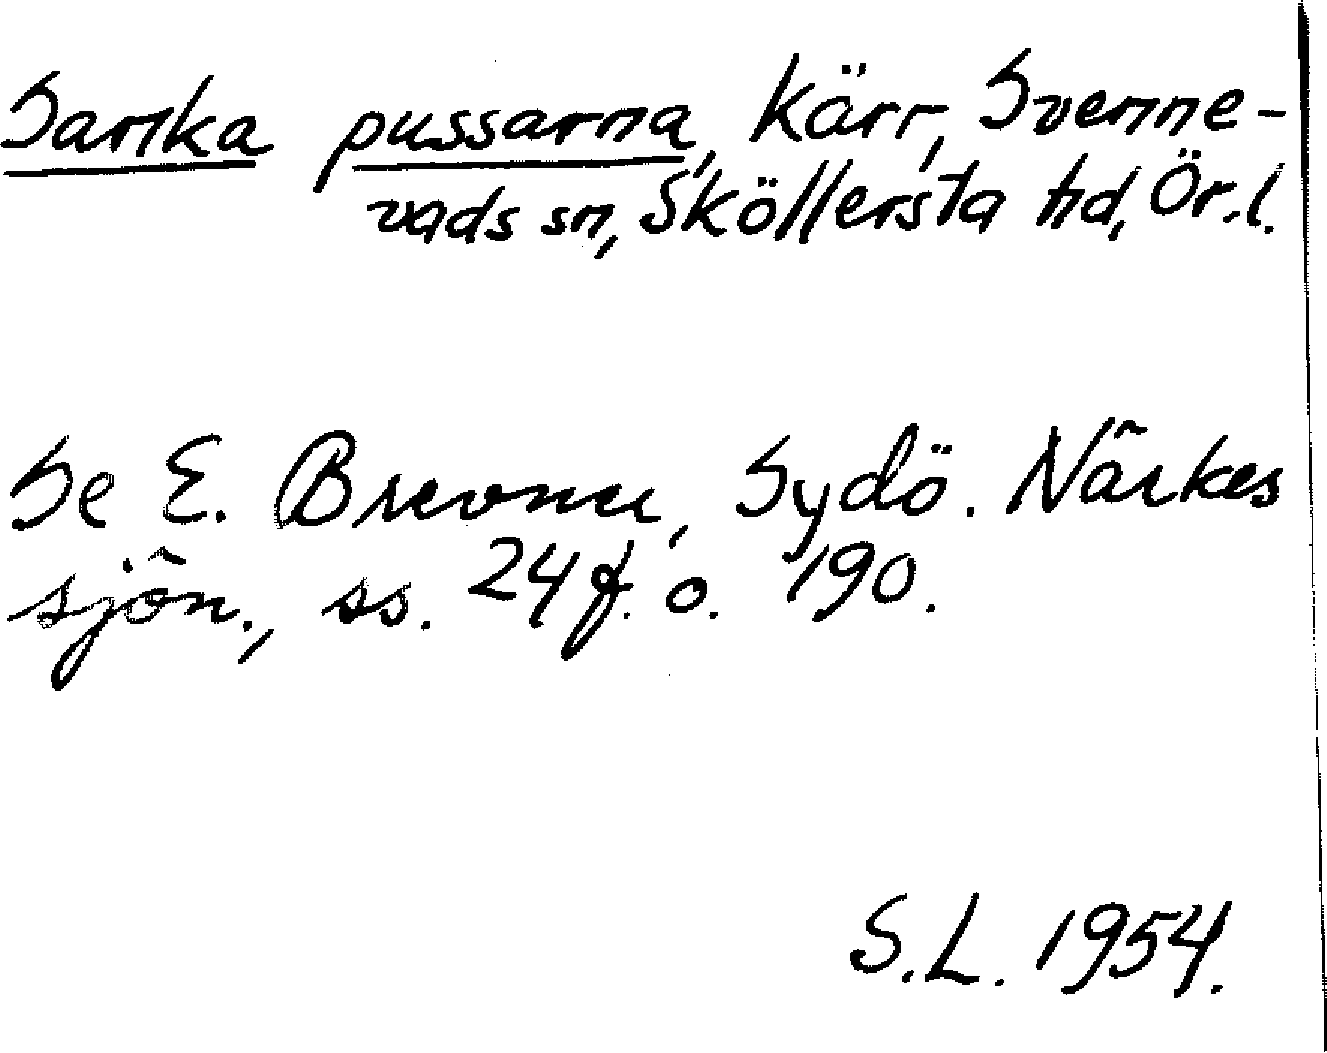 Sanka pussarna, Kärr, Svenne-
vads sn, Sköllersta hd, Ör.l.
Se E. Brevner, Sydö. Närkes
sjön., ss. 24 f. o. 190.
S.L. 1954.